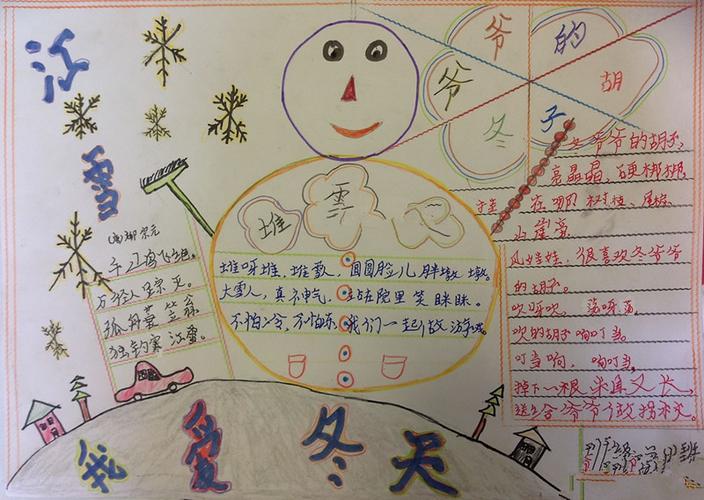 江雪
(唐)柳宗元
千山鸟飞绝。
万径人踪灭。
孤舟蓑笠翁
独钓寒江雪。
堆雪人
堆呀堆，堆雪人，圆圆脸儿胖墩墩。
大雪人，真神气，站在院里笑眯眯。
不怕冷，不怕冻，我们一起做游戏。
冬爷爷的胡子
冬爷爷的胡子，
亮晶晶，硬梆梆，
山崖旁
风娃娃，很喜欢冬爷爷
的胡子。
吹的胡子响叮当。
叮当响，响叮当，
掉下一根米真又长，
送给爷爷做拐杖。
我爱冬天